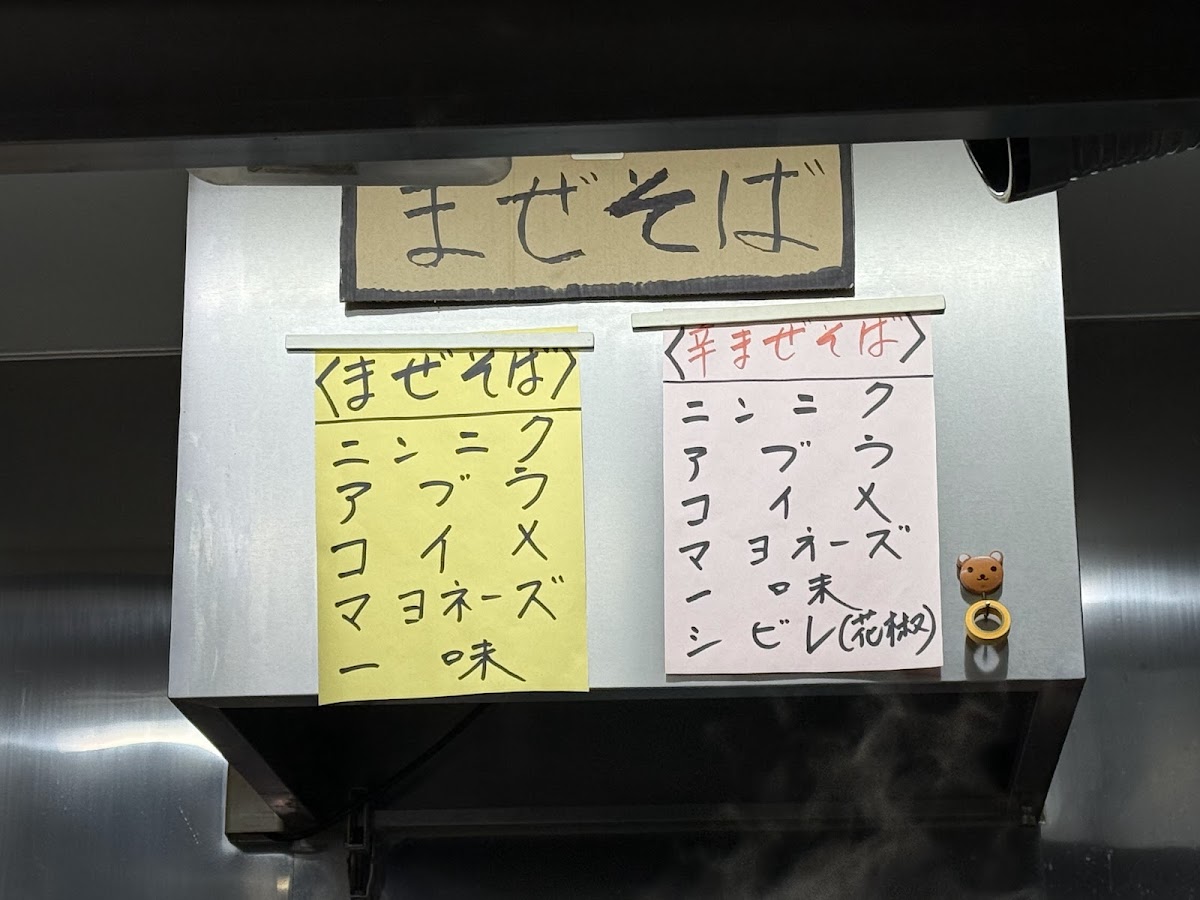 まぜそば
〈まぜそば〉
ニンニク
アブラ
コイメ
マヨネーズ
一味
〈辛まぜそば〉
ニンニク
アブラ
コイメ
マヨネーズ
一味
シビレ(花椒)